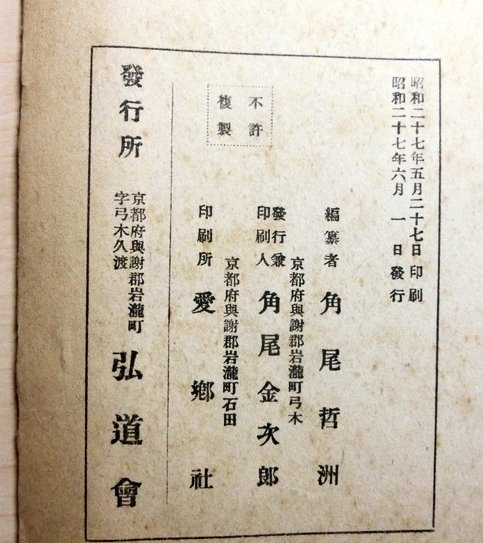 昭和二十七年五月二十七日印刷
昭和二十七年六月一日發行
編纂者 角尾哲洲
京都府與謝郡岩瀧町弓木
發行兼印刷人 角尾金次郎
京都府與謝郡岩瀧町石田
印刷所 愛鄕社
不許
複製
發行所
京都府與謝郡岩瀧町
字弓木久渡
弘道會